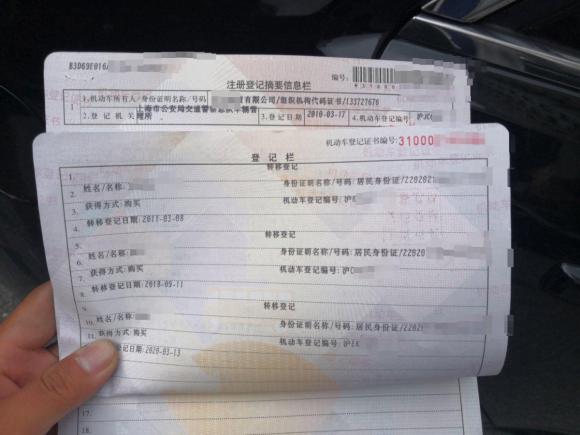 B3D69E016
编号:
注册登记摘要信息栏
1
1.机动车所有人/身份证明名称/号码 有限公司/组织机构代码证书/133727676
2.登记机关 上海市公安局交通警察总队车辆管理所 3.登记日期 2010-03-17 4.机动车登记编号 沪JC
机动车登记证书编号:31000
登记栏
1. 转移登记
2. 姓名/名称: 身份证明名称/号码:居民身份证/220202
3. 获得方式:购买 机动车登记编号:沪
4. 转移登记日期:2011-03-08
5. 转移登记
6. 姓名/名称: 身份证明名称/号码:居民身份证/22020
7. 获得方式:购买 机动车登记编号:沪C
8. 转移登记日期:2018-09-11
9. 转移登记
10. 姓名/名称: 身份证明名称/号码:居民身份证/22028
11. 获得方式:购买 机动车登记编号:沪EK
登记日期:2020-03-13
17.
18.